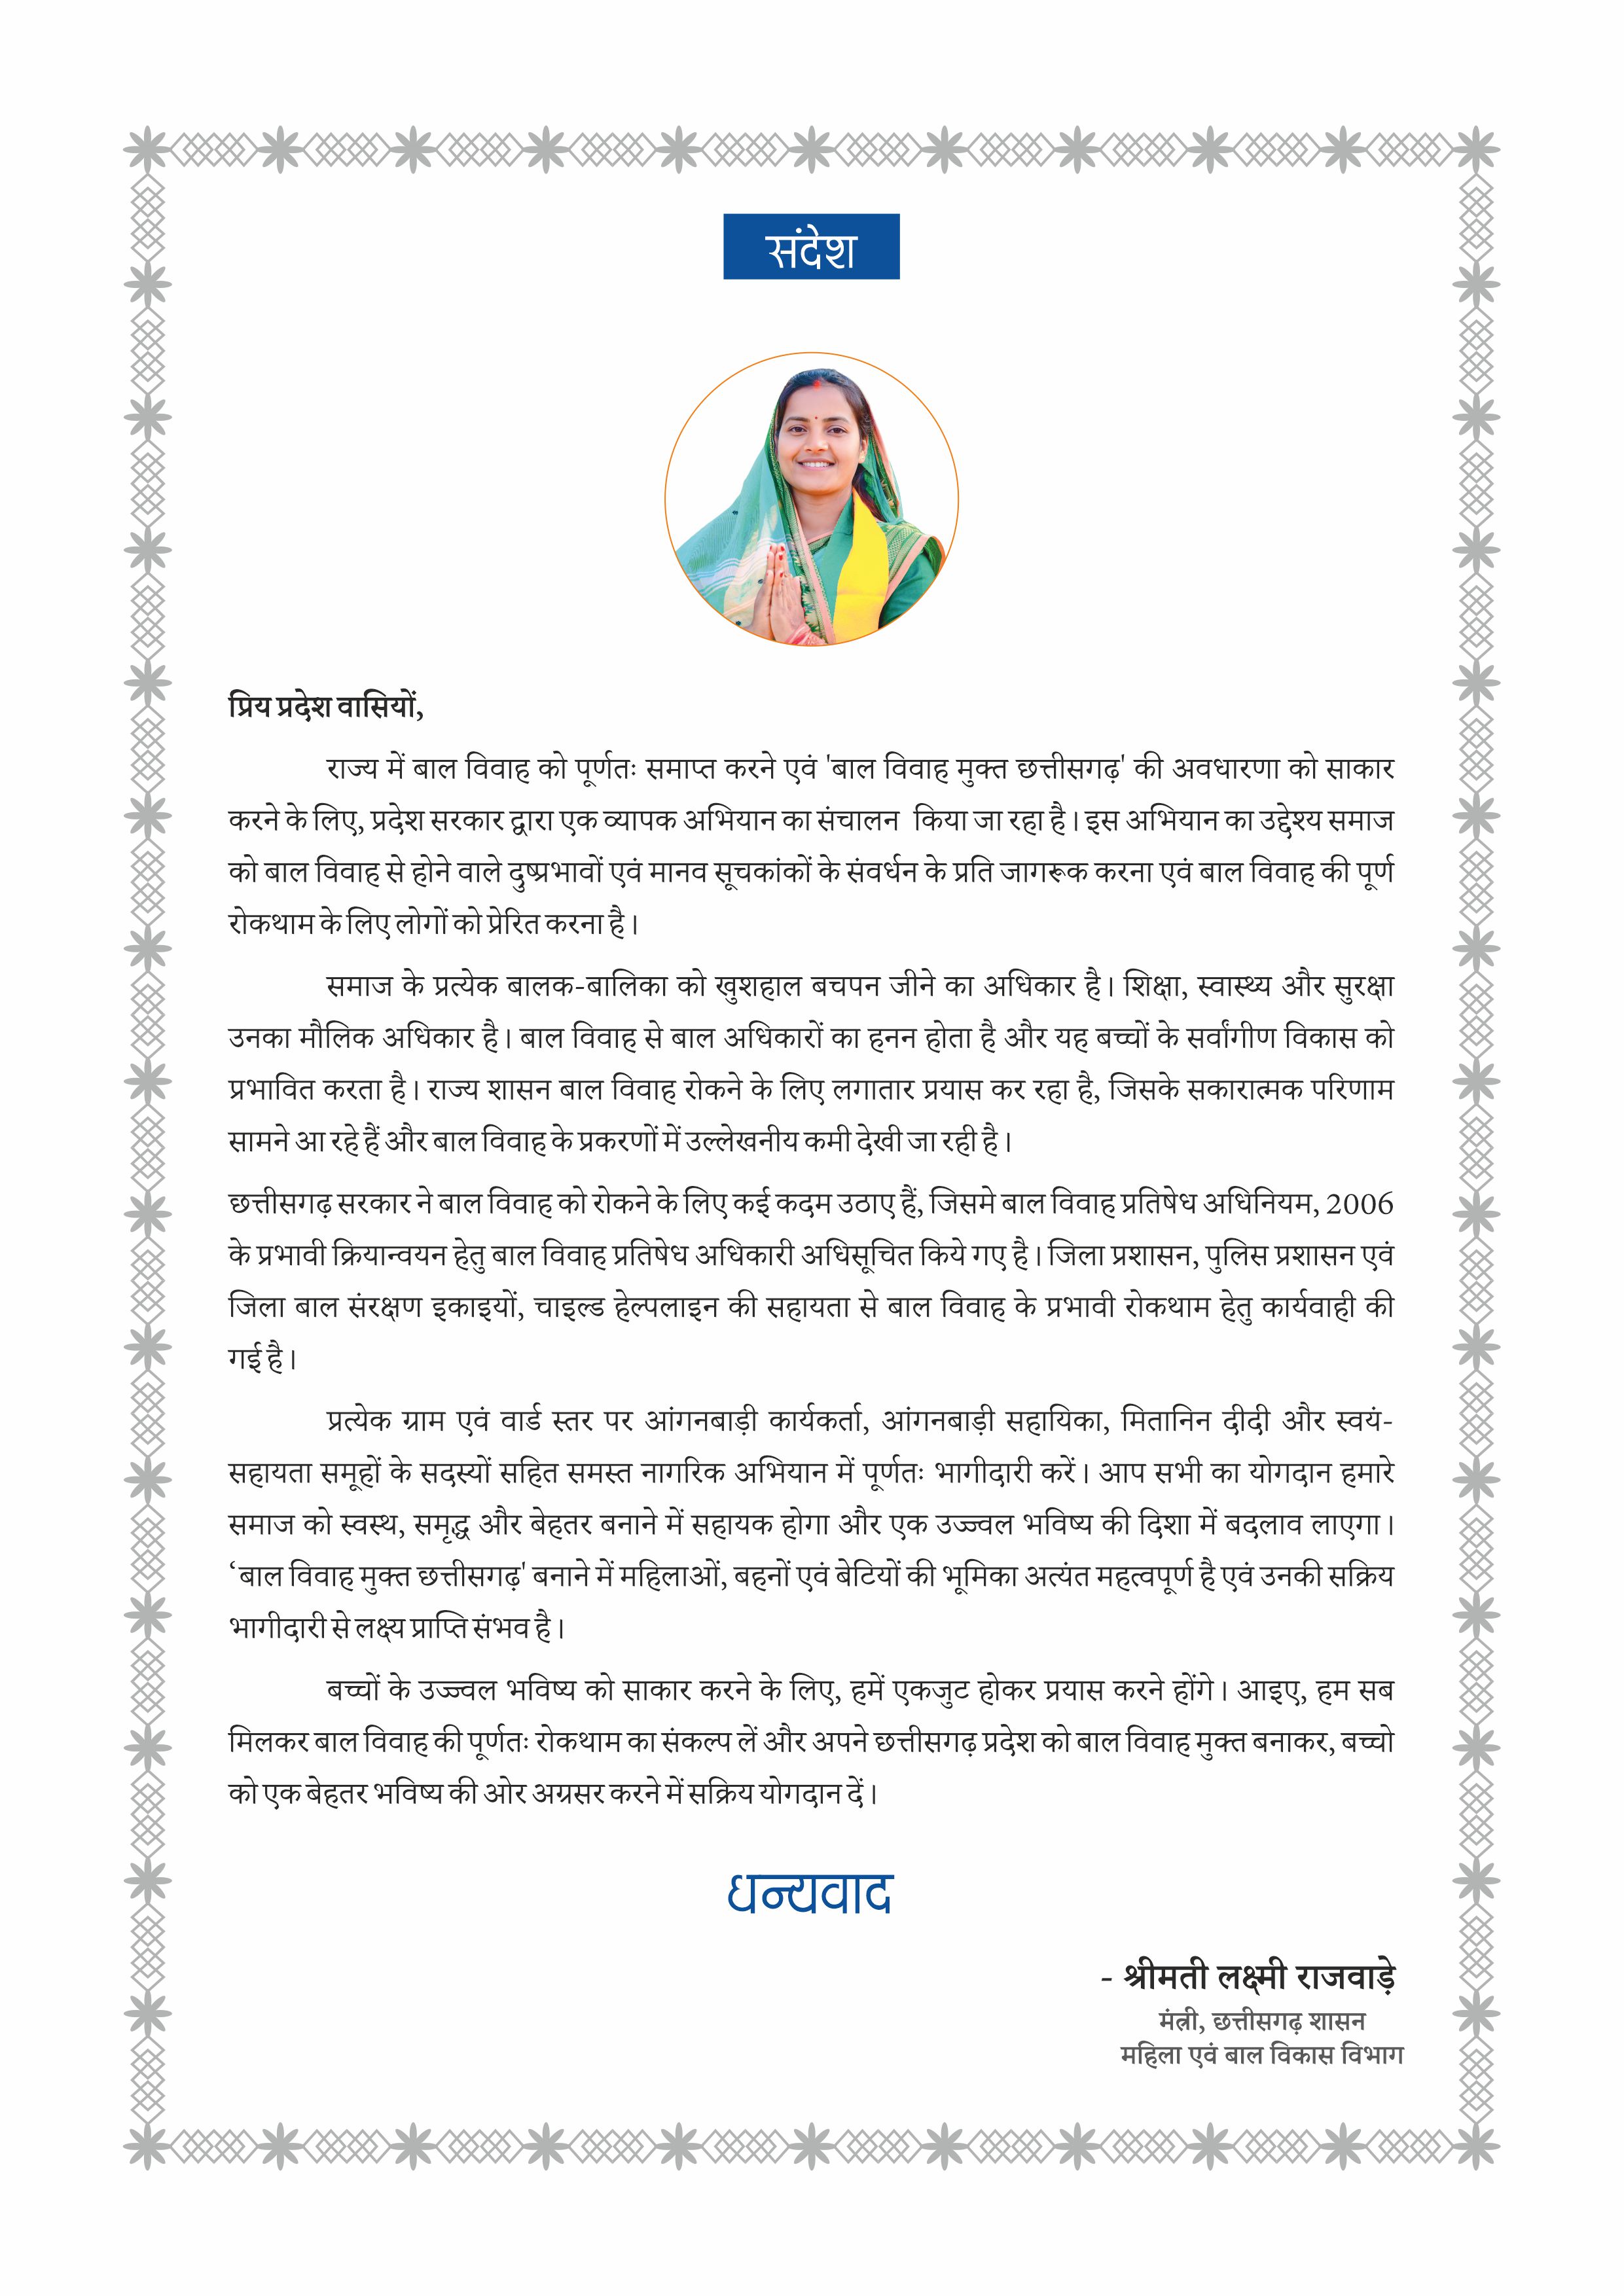 संदेश
प्रिय प्रदेश वासियों,
राज्य में बाल विवाह को पूर्णतः समाप्त करने एवं 'बाल विवाह मुक्त छत्तीसगढ़' की अवधारणा को साकार
करने के लिए, प्रदेश सरकार द्वारा एक व्यापक अभियान का संचालन किया जा रहा है। इस अभियान का उद्देश्य समाज
को बाल विवाह से होने वाले दुष्प्रभावों एवं मानव सूचकांकों के संवर्धन के प्रति जागरूक करना एवं बाल विवाह की पूर्ण
रोकथाम के लिए लोगों को प्रेरित करना है।
समाज के प्रत्येक बालक-बालिका को खुशहाल बचपन जीने का अधिकार है। शिक्षा, स्वास्थ्य और सुरक्षा
उनका मौलिक अधिकार है। बाल विवाह से बाल अधिकारों का हनन होता है और यह बच्चों के सर्वांगीण विकास को
प्रभावित करता है। राज्य शासन बाल विवाह रोकने के लिए लगातार प्रयास कर रहा है, जिसके सकारात्मक परिणाम
सामने आ रहे हैं और बाल विवाह के प्रकरणों में उल्लेखनीय कमी देखी जा रही है।
छत्तीसगढ़ सरकार ने बाल विवाह को रोकने के लिए कई कदम उठाए हैं, जिसमे बाल विवाह प्रतिषेध अधिनियम, 2006
के प्रभावी क्रियान्वयन हेतु बाल विवाह प्रतिषेध अधिकारी अधिसूचित किये गए है। जिला प्रशासन, पुलिस प्रशासन एवं
जिला बाल संरक्षण इकाइयों, चाइल्ड हेल्पलाइन की सहायता से बाल विवाह के प्रभावी रोकथाम हेतु कार्यवाही की
गई है।
प्रत्येक ग्राम एवं वार्ड स्तर पर आंगनबाड़ी कार्यकर्ता, आंगनबाड़ी सहायिका, मितानिन दीदी और स्वयं-
सहायता समूहों के सदस्यों सहित समस्त नागरिक अभियान में पूर्णतः भागीदारी करें। आप सभी का योगदान हमारे
समाज को स्वस्थ, समृद्ध और बेहतर बनाने में सहायक होगा और एक उज्ज्वल भविष्य की दिशा में बदलाव लाएगा।
‘बाल विवाह मुक्त छत्तीसगढ़' बनाने में महिलाओं, बहनों एवं बेटियों की भूमिका अत्यंत महत्वपूर्ण है एवं उनकी सक्रिय
भागीदारी से लक्ष्य प्राप्ति संभव है।
बच्चों के उज्ज्वल भविष्य को साकार करने के लिए, हमें एकजुट होकर प्रयास करने होंगे। आइए, हम सब
मिलकर बाल विवाह की पूर्णतः रोकथाम का संकल्प लें और अपने छत्तीसगढ़ प्रदेश को बाल विवाह मुक्त बनाकर, बच्चो
को एक बेहतर भविष्य की ओर अग्रसर करने में सक्रिय योगदान दें।
धन्यवाद
- श्रीमती लक्ष्मी राजवाड़े
मंत्री, छत्तीसगढ़ शासन
महिला एवं बाल विकास विभाग